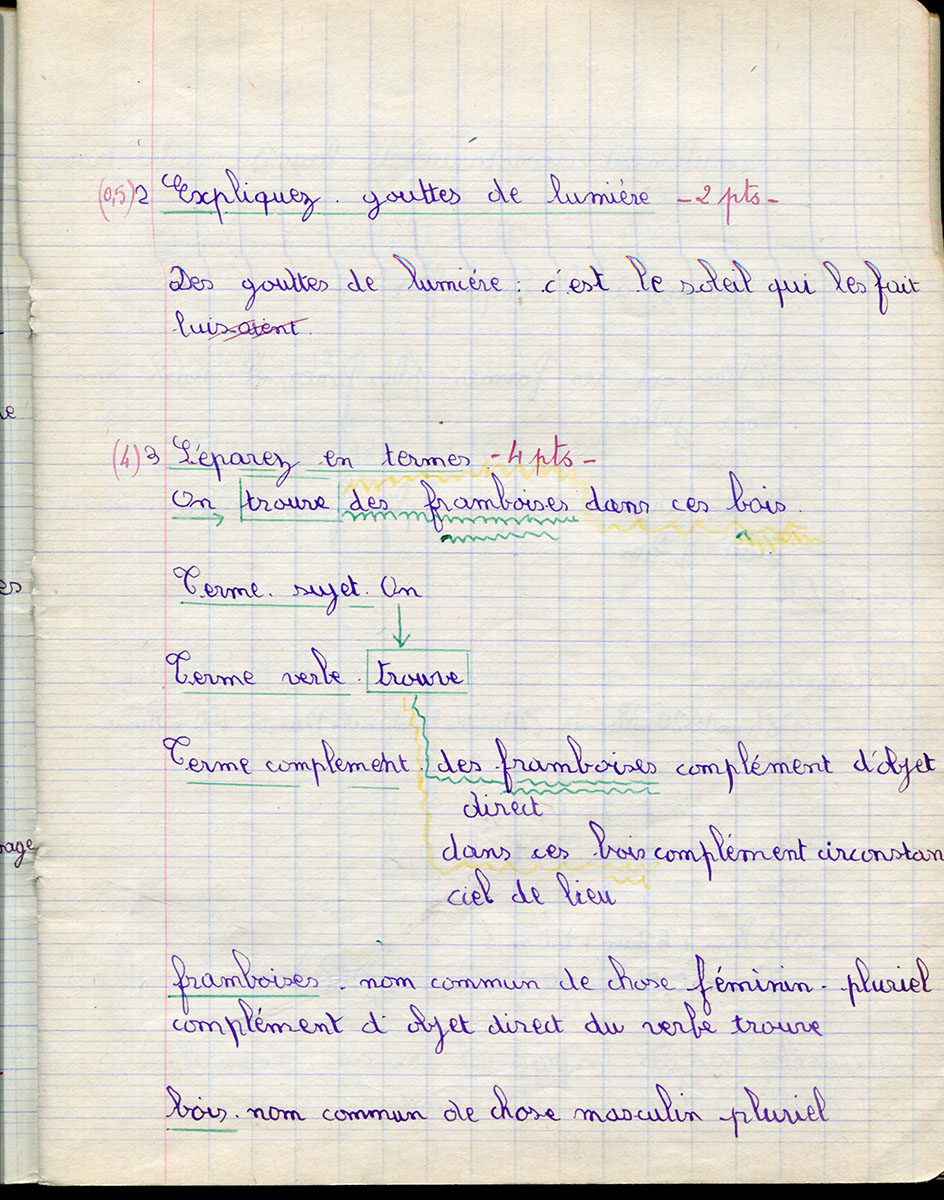 (0,5) 2 Expliquez. gouttes de lumiére - 2 pts -
Des gouttes de lumiére : c'est le soleil qui les fait
luisaient.
(4) 3 Séparez en termes - 4 pts -
On trouve des framboises dans ces bois.
Terme. sujet. On
Terme verbe. trouve
Terme complement. des framboises complément d'objet
direct
dans ces bois complément circonstan
ciel de lieu
framboises. nom commun de chose féminin - pluriel
complément d'objet direct du verbe trouve
bois. nom commun de chose masculin pluriel